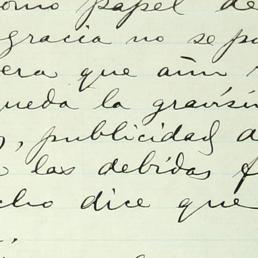 como papel de
gracia no se pu
era que aún
queda la gravísi
, publicidad d
las debidas f
cho dice que